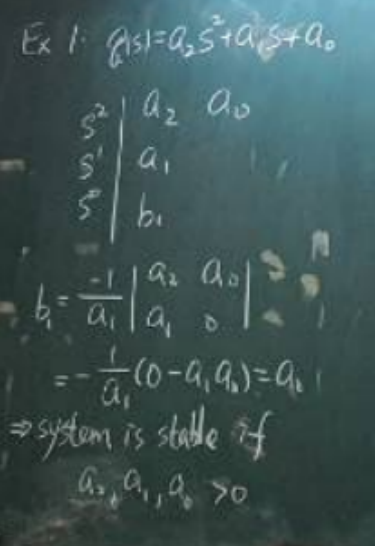 Ex 1. q(s)=a₂s²+a₁s+a₀
s² | a₂ a₀
s¹ | a₁
s⁰ | b₁
b₁ = -1/a₁ | a₂ a₀ |
| a₁ 0 |
= -1/a₁ (0-a₁a₀)=a₀
⇒ system is stable if
a₂, a₁, a₀ >0